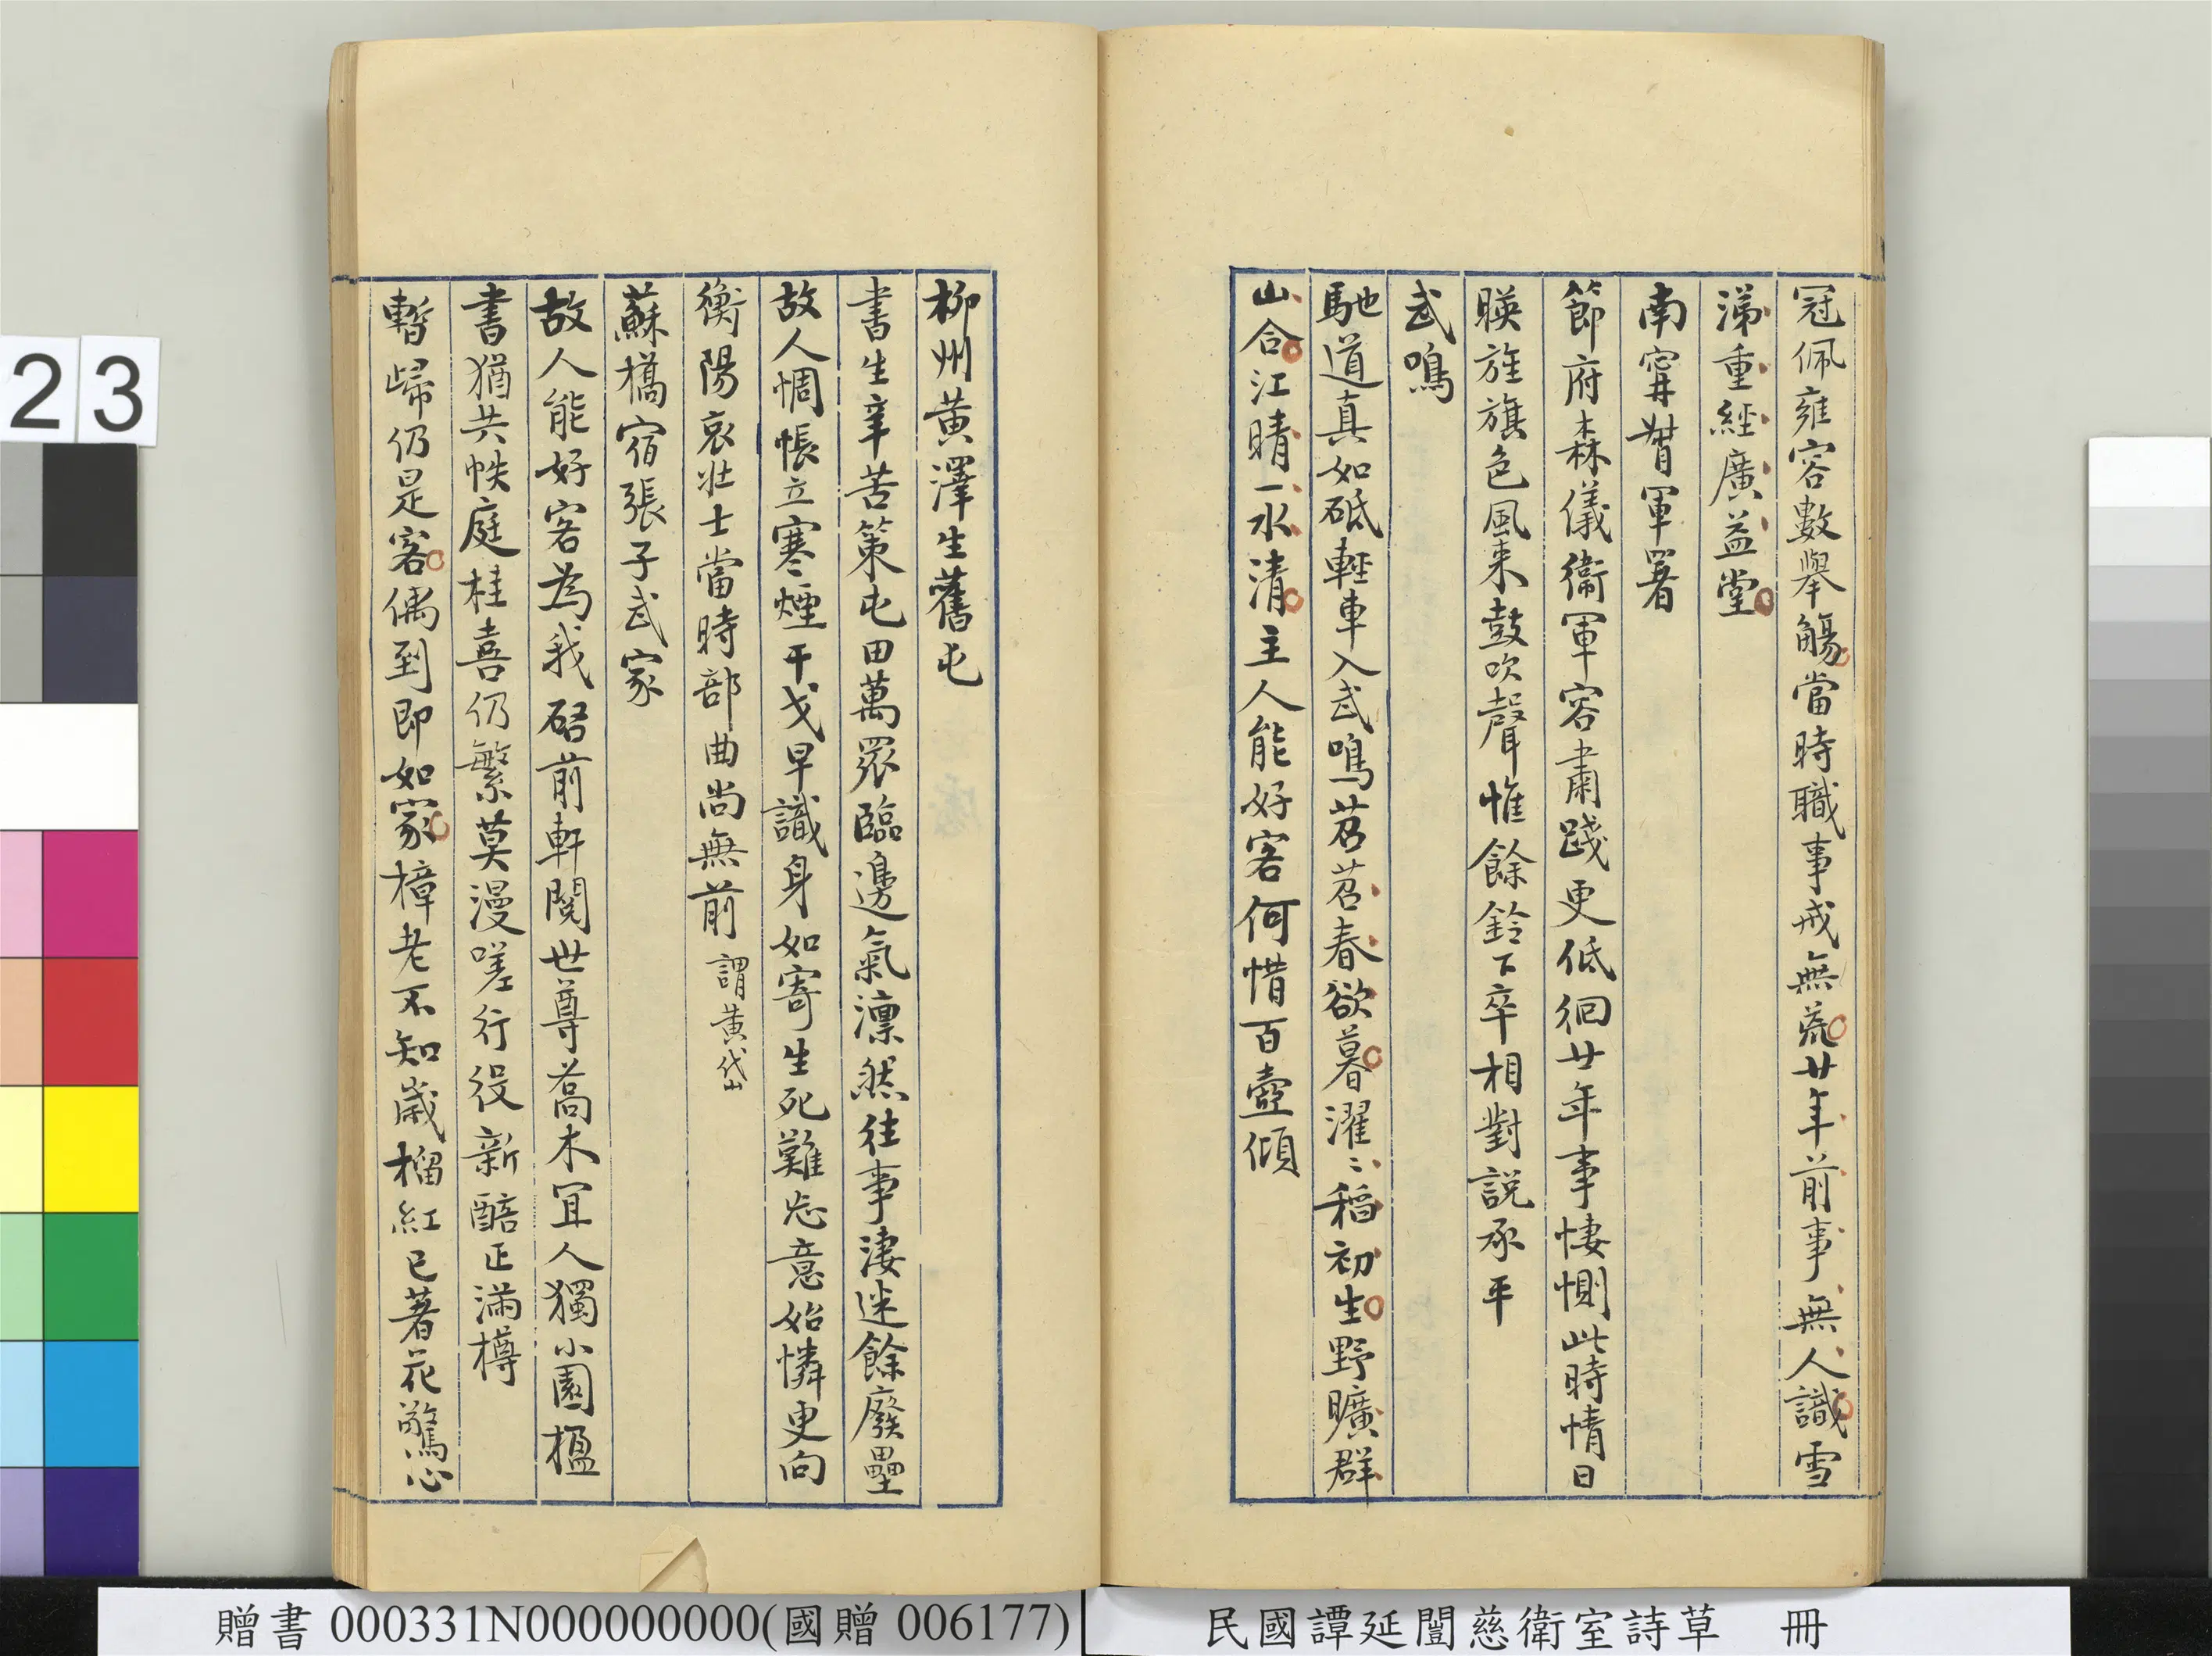 冠佩雍容數舉觴當時職事戒無荒廿年前事無人識雪
涕重經廣益堂
南甯督軍署
節府森儀衛軍容肅踐更低徊廿年事悽惻此時情日
暎旌旗色風来鼓吹聲惟餘鈴下卒相對説承平
武鳴
馳道真如砥輕車入武鳴苕苕春欲暮濯〻稻初生野曠群
山合江晴一水清主人能好客何惜百壺傾
柳州黄澤生舊屯
書生辛苦策屯田萬眾臨邊氣凛然往事淒迷餘廢壘
故人惆悵立寒煙干戈早識身如寄生死難忘意始憐更向
衡陽哀壯士當時部曲尚無前謂黄岱
蘇橋宿張子武家
故人能好客為我啓前軒閱世尊喬木宜人獨小園楹
書猶共帙庭桂喜仍繁莫漫嗟行役新醅正滿樽
暫歸仍是客偶到即如家樟老不知歲榴紅已著花驚心
23
贈書 000331N000000000(國贈 006177)
民國譚延闓慈衛室詩草 冊